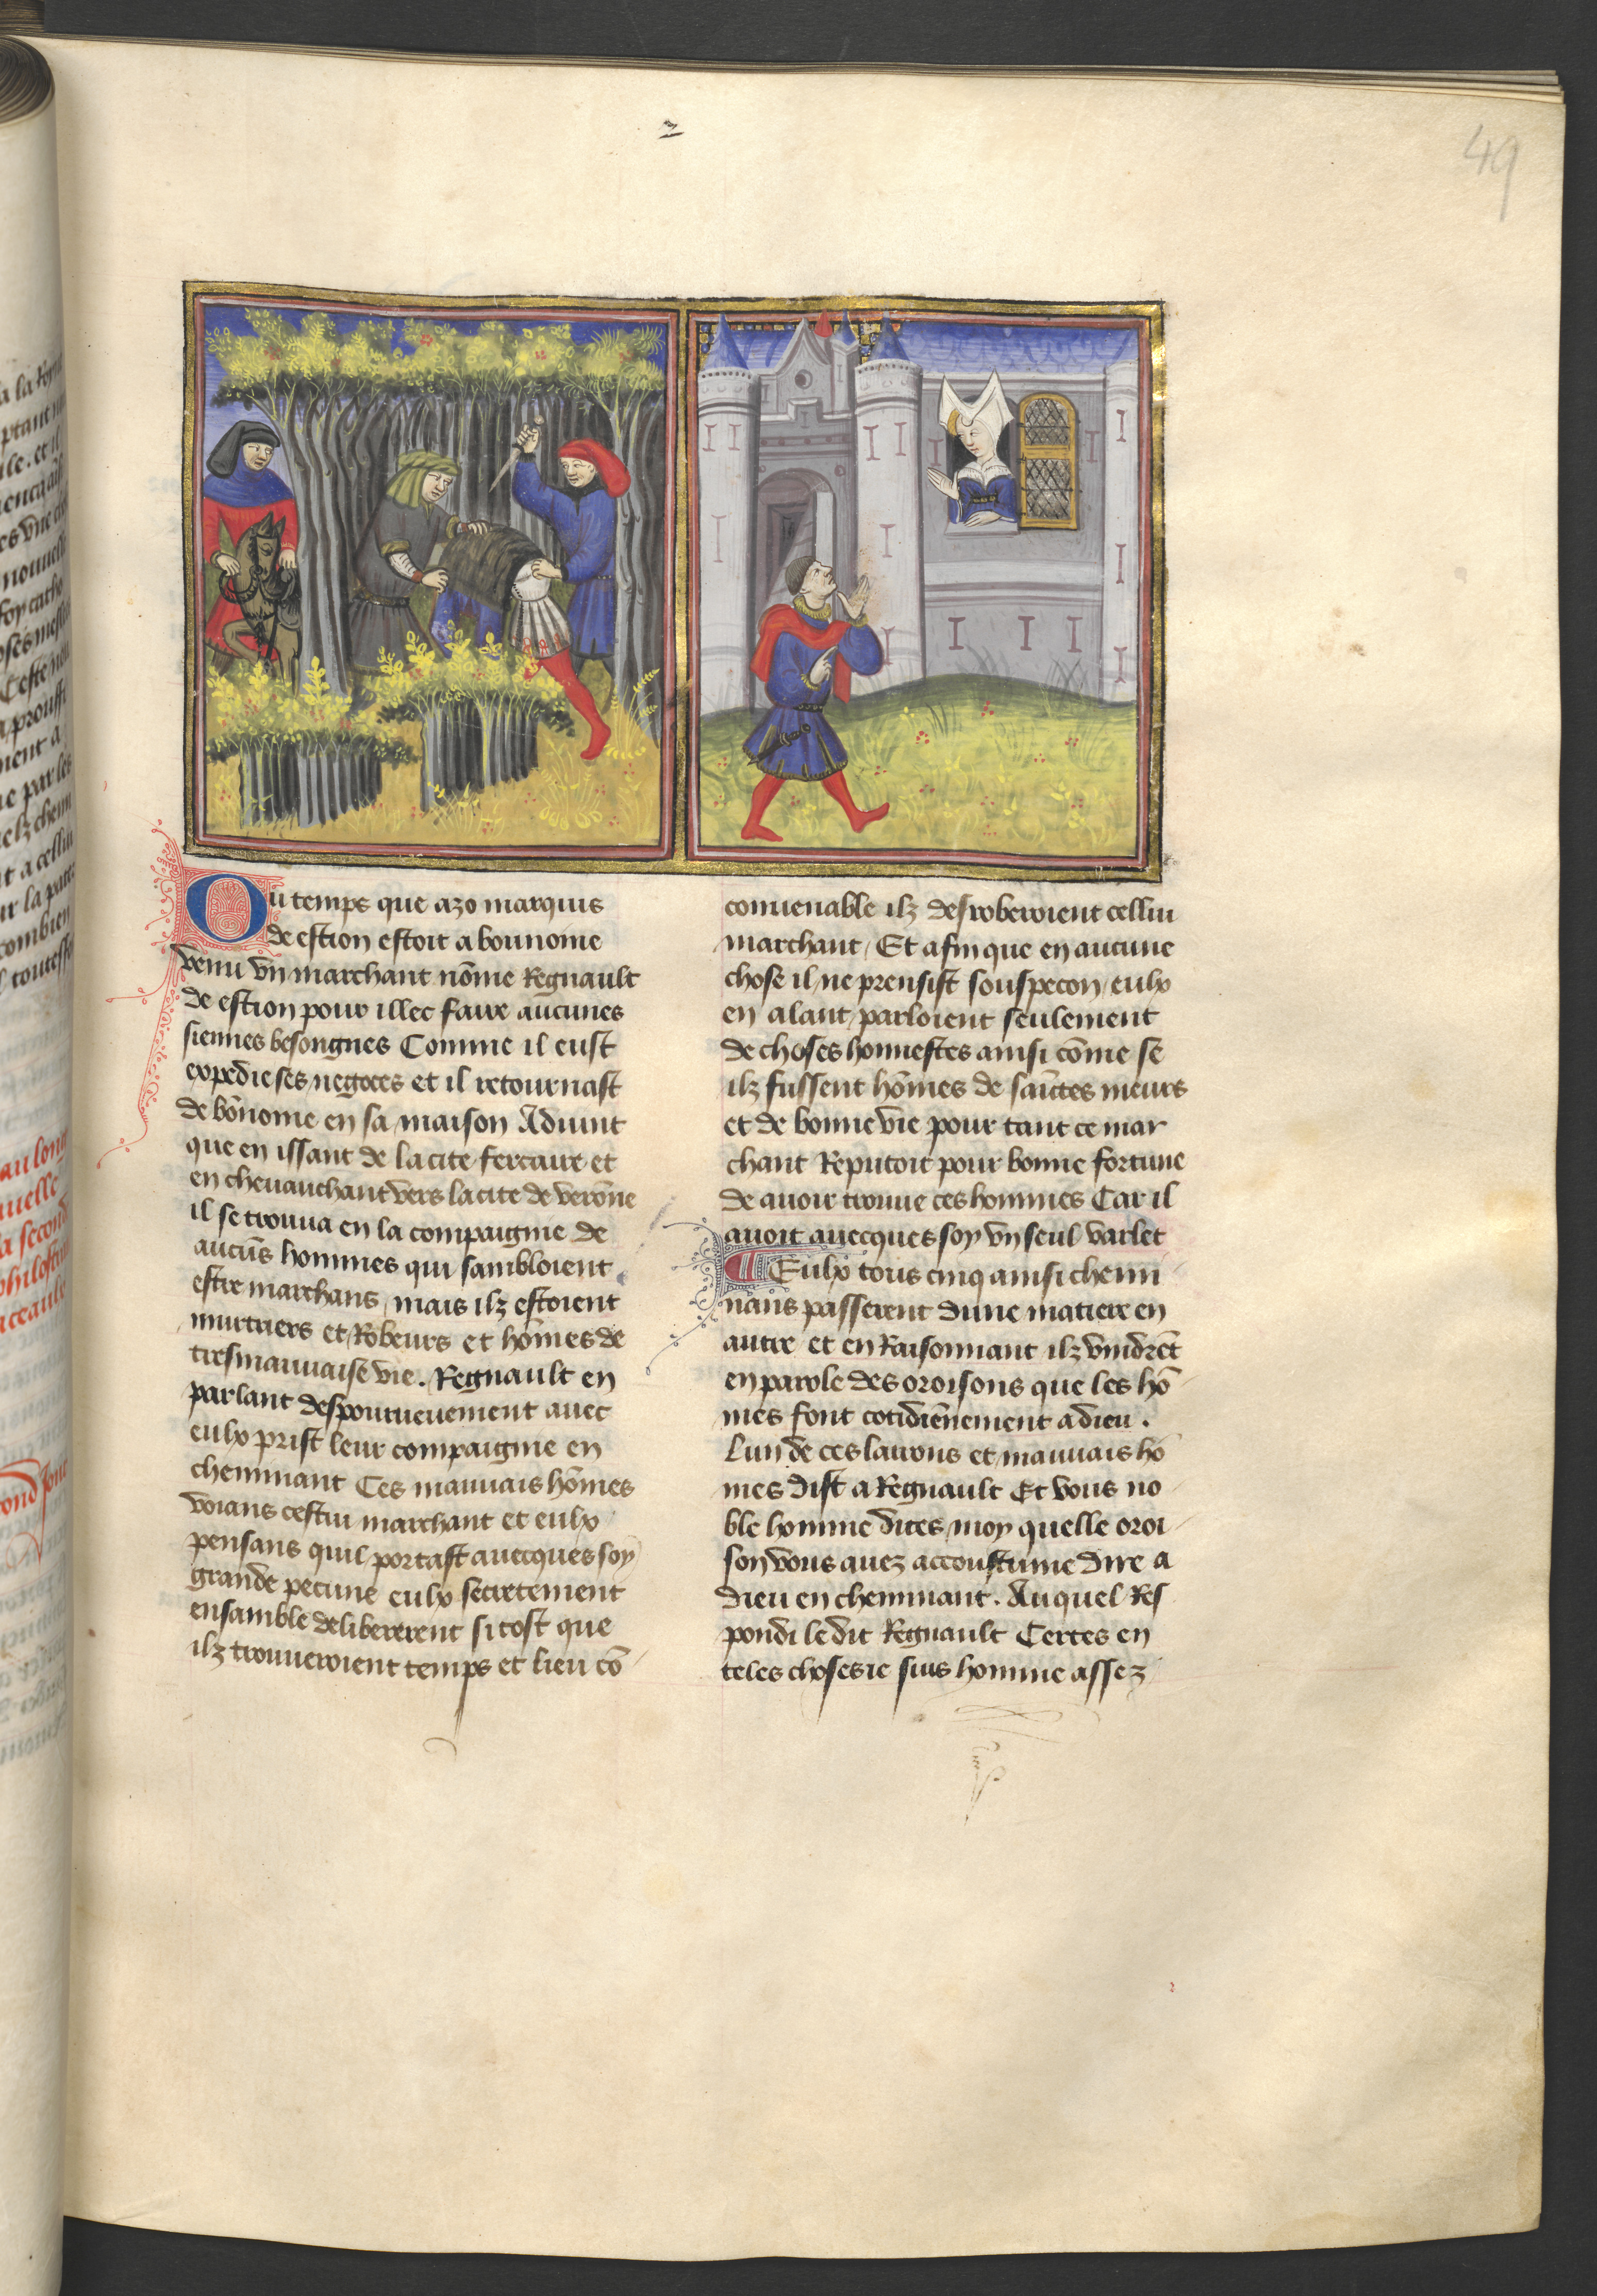 49
Ou temps que azo marquis
de estion estoit a bounome
venu vn marchant nōme Regnault
de estion pour illec faire aucunes
siennes besongnes Comme il eust
expedie ses negoces et il retournast
de bōnome en sa maison Aduint
que en issant de la cite ferraire et
en cheuauchant vers la cite de verōne
il se trouua en la compaignie de
aucūs hommes qui sambloient
estre marchans mais ilz estoient
murtriers et Robeurs et hōmes de
tresmauuaise vie. Regnault en
parlant despourueuement auec
eulx prist leur compaignie en
cheminant Ces mauuais hōmes
voians cestui marchant et eulx
pensans quil portast auecques soy
grande pecune eulx secretement
ensamble delibererent si tost que
ilz trouueroient temps et lieu cō
conuenable ilz desroberoient cellui
marchant / Et afin que en aucune
chose il ne prensist souspecon eulx
en alant parloient seulement
de choses honnestes ainsi cōme se
ilz fussent hōmes de saīctes meurs
et de bonne vie pour tant ce mar
chant Reputoit pour bonne fortune
de auoir trouue ces hommes Car il
auoit auecques soy vn seul varlet
Eulx tous cinq ainsi chemi
nans passerent dune matiere en
autre et en Raisonnant ilz vindrēt
en parole des oroisons que les hō
mes font cotidiēnement a dieu .
Lun de ces larrons et mauuais hō
mes dist a Regnault Et vous no
ble homme dites moy quelle oroi
son vous auez accoustume dire a
dieu en cheminant . Auquel Res
pondi le dit Regnault Certes en
teles choses ie suis homme assez